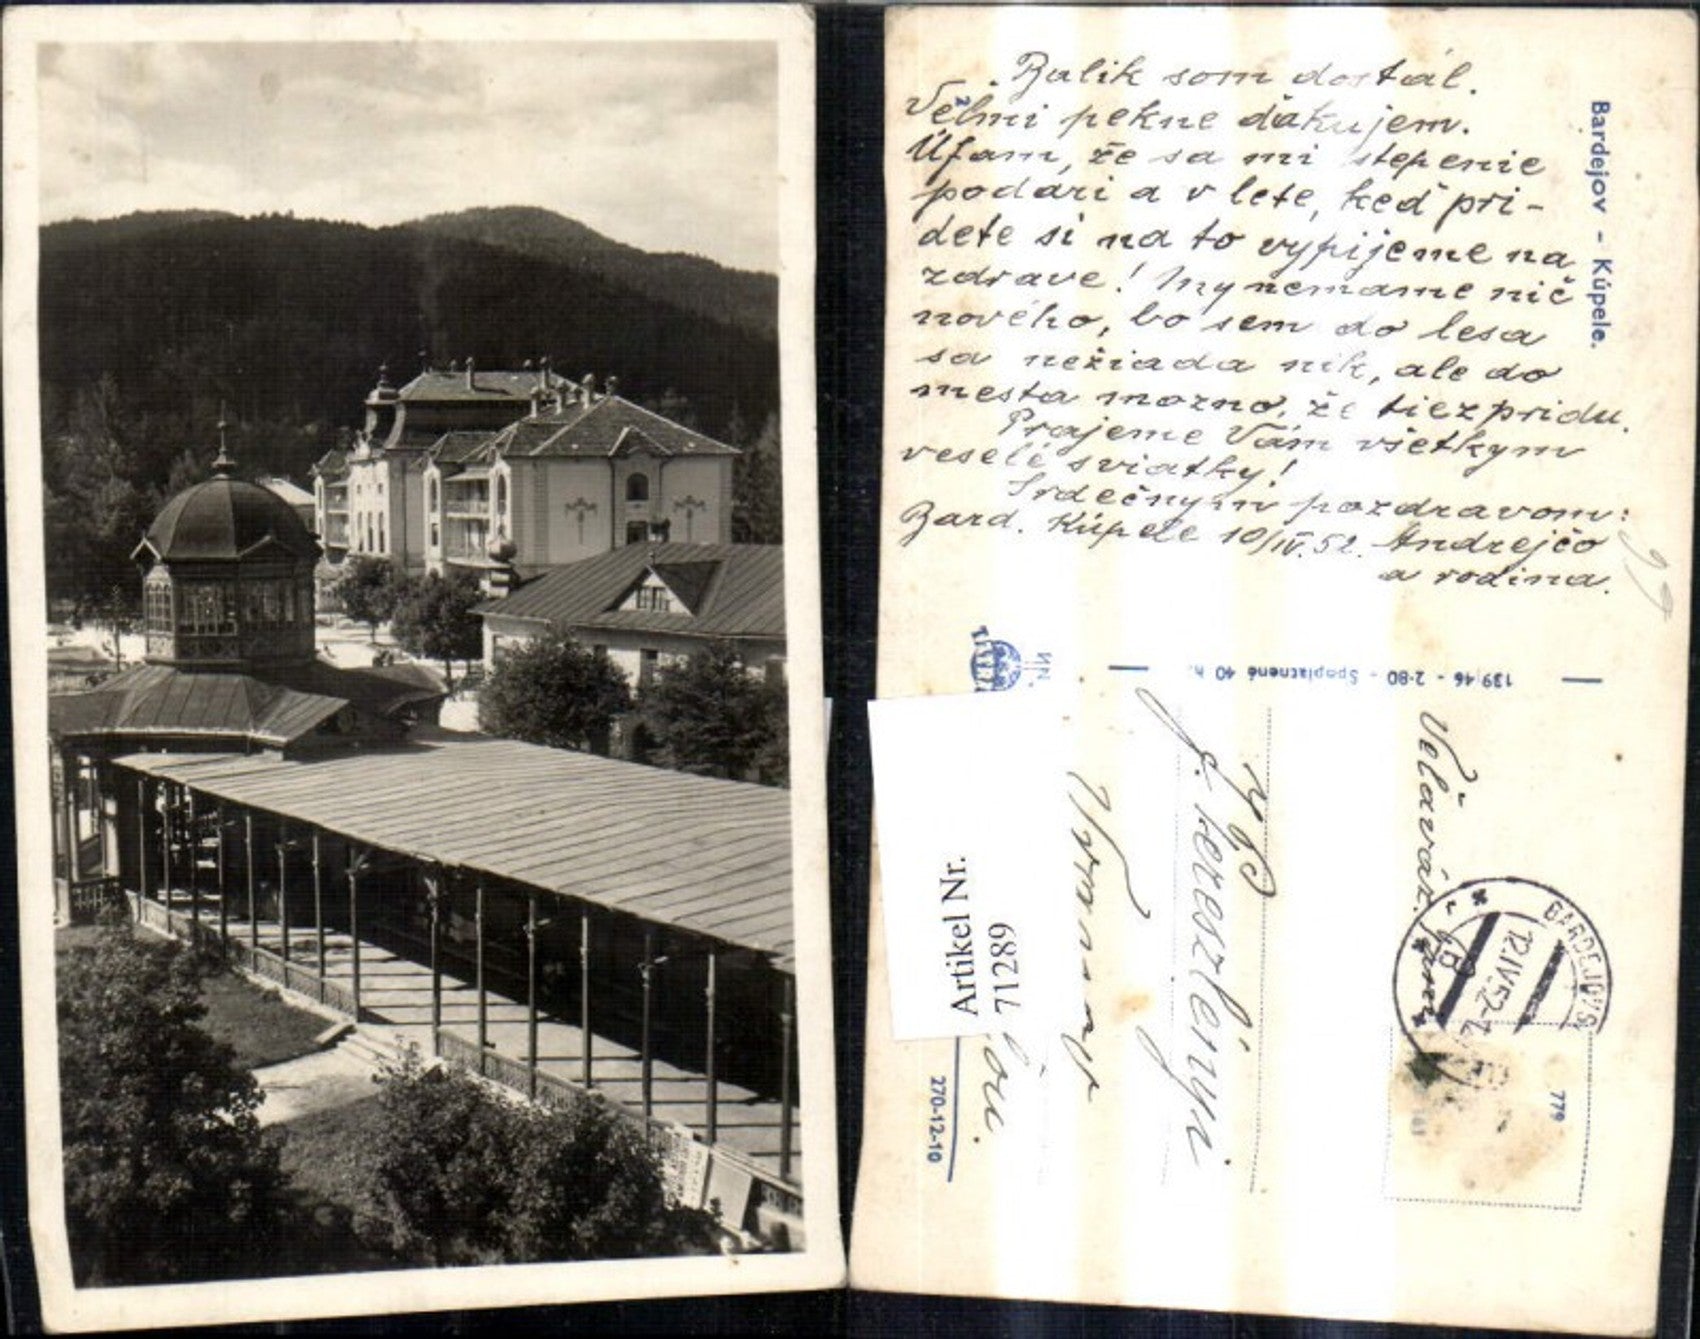 Balik som dostál.
Veľmi pekne ďakujem.
Úfam, že sa mi stepenie
podari a v lete, keď pri-
dete si na to vypijeme na
zdrave! My nemame nič
nového, bo sem do lesa
sa nežiada nik, ale do
mesta mozno, že tiez pridu.
Prajeme Vám všetkym
veselé sviatky!
Srdečnym pozdravom:
Bard. Kúpele 10/IV.52. Andrejčo
a rodina.
Bardejov - Kúpele.
139/46 - 2·80 - Spoplatnené 40 h.
BARDEJOV
12.IV.52
779
V P
J. Kereszlényi
Vranov
270-12-10
Artikel Nr.
71289